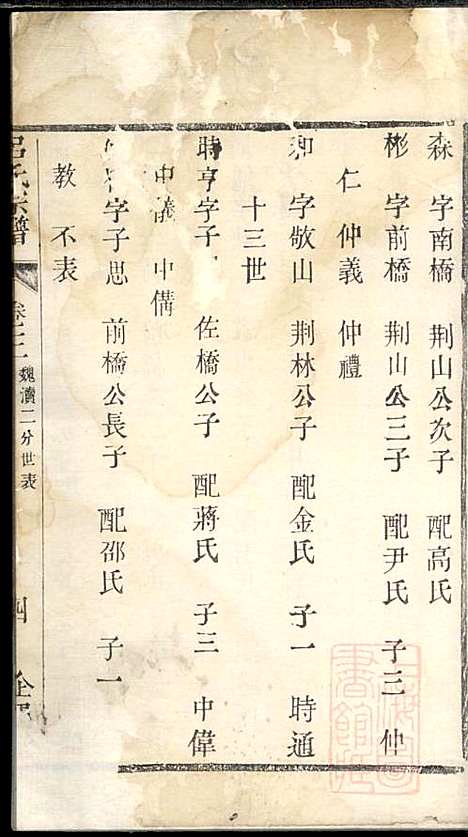 森 字南橋 荆山公次子 配高氏
彬 字前橋 荆山公三子 配尹氏 子三 仲
仁 仲義 仲禮
和 字敬山 荆林公子 配金氏 子一 時通
十三世
時亨字子 佐橋公子 配蔣氏 子三 中偉
中儀 中備
字子思 前橋公長子 配邵氏 子一
教 不表
呂氏宗譜 卷之二 魏瀆二分世表 四